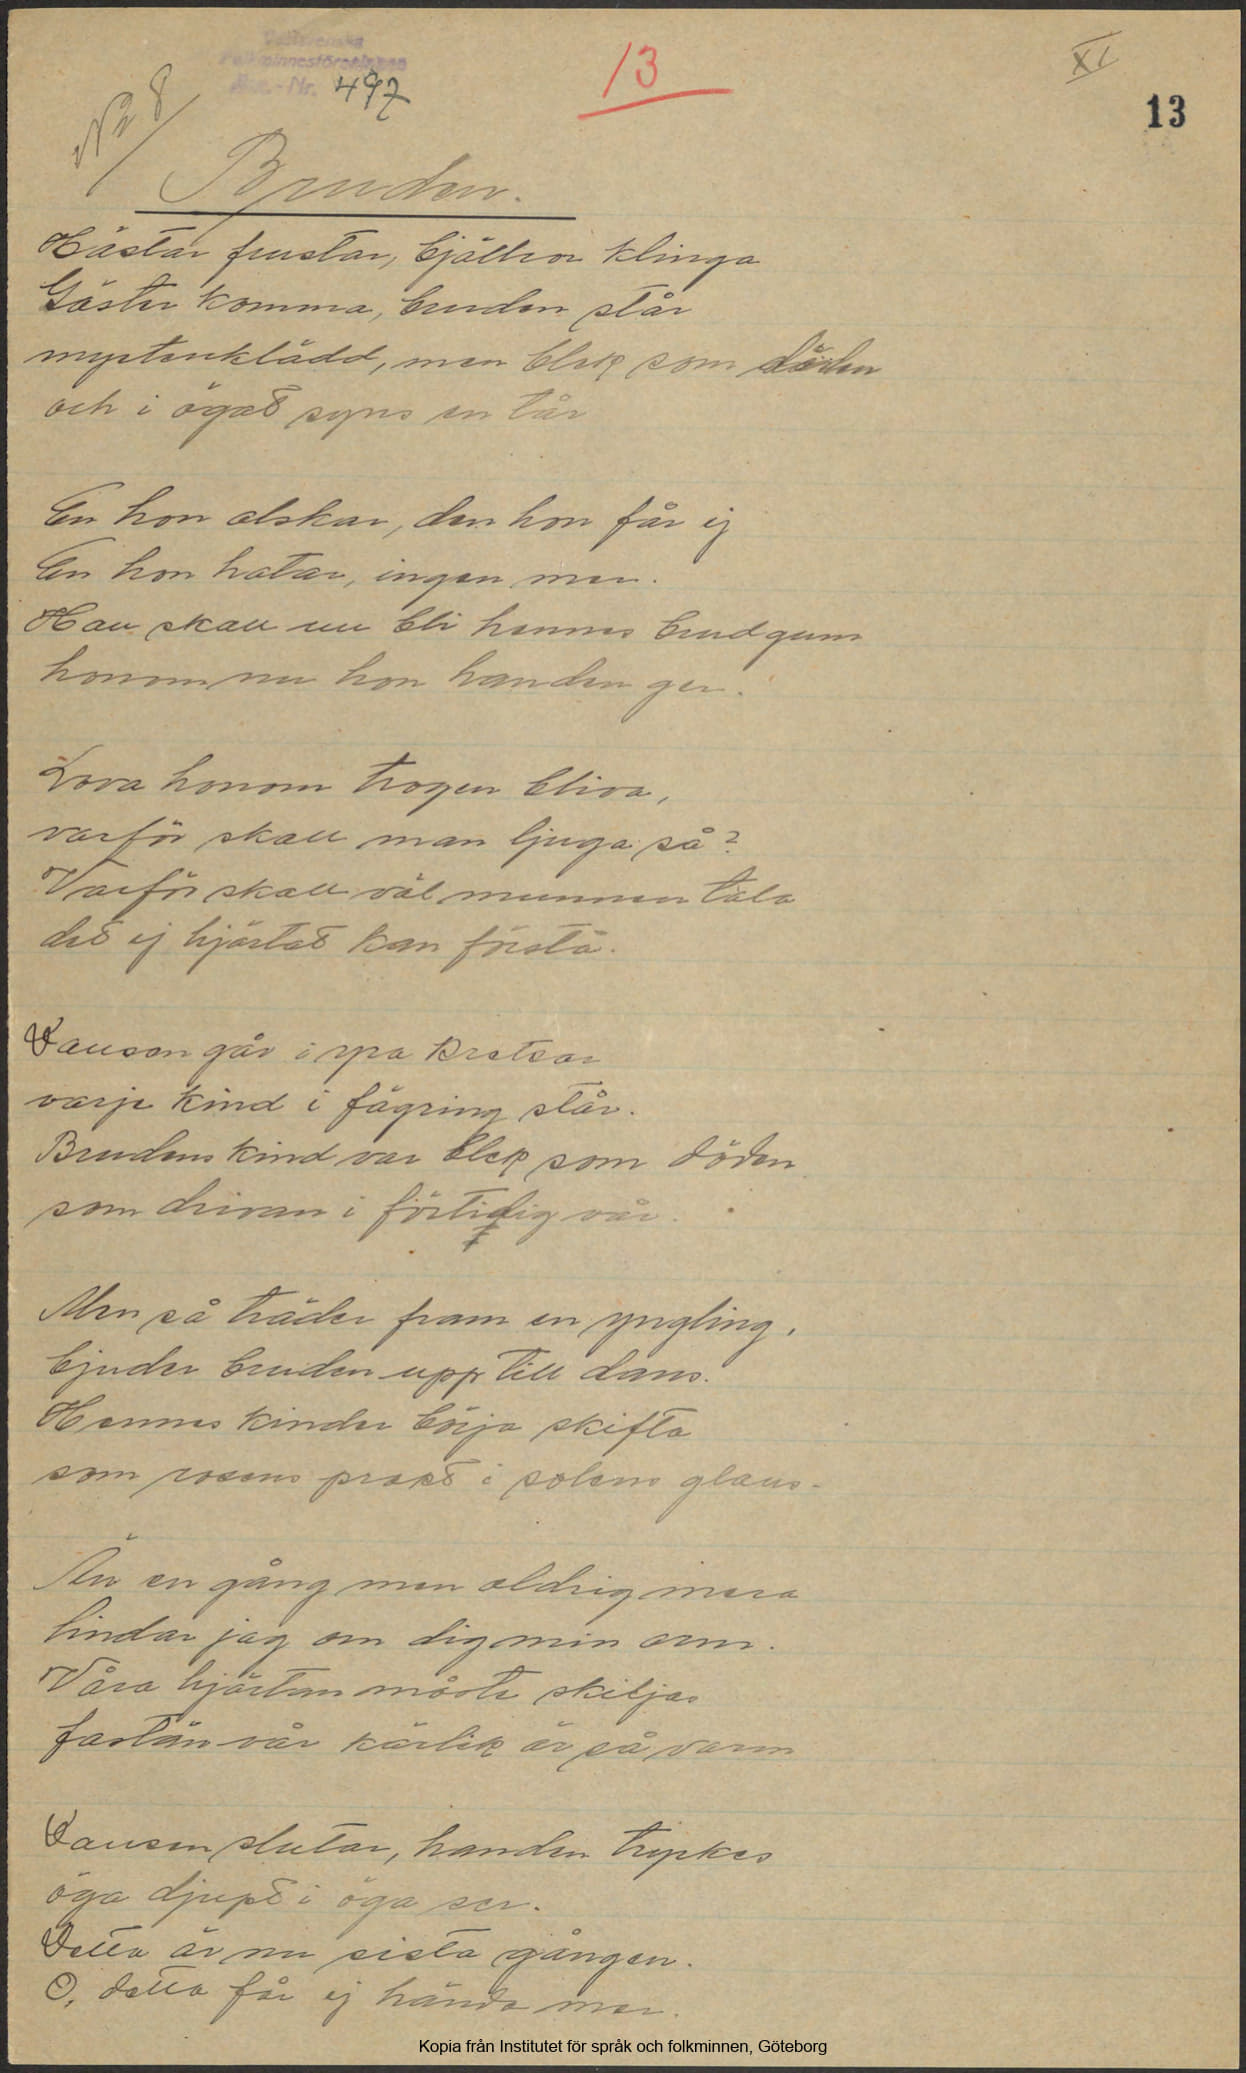 Västsvenska
Folkminnesföreningen
Acc.-Nr. 497
13
XI
13
No 8
Bruden.
Hästar frustar, bjällror klinga
Gäster komma, bruden står
myrtenklädd, men blek som döden
och i ögat syns en tår
En hon älskar, den hon får ej
En hon hatar, ingen mer.
Han skall nu bli hennes brudgum
honom nu hon handen ger.
Lova honom trogen bliva,
varför skall man ljuga så?
Varför skall väl munnen tala
det ej hjärtat kan förstå.
Dansen går i yra kretsar
varje kind i fägring står.
Brudens kind var blek som döden
som drivan i förtidig vår.
Men så träder fram en yngling,
bjuder bruden upp till dans.
Hennes kinder börja skifta
som rosens prakt i solens glans.
Än en gång men aldrig mera
lindar jag om dig min arm.
Våra hjärtan måste skiljas
fastän vår kärlek är så varm
Dansen slutar, handen tryckes
öga djupt i öga ser.
Detta är nu sista gången.
O, detta får ej hända mer.
Kopia från Institutet för språk och folkminnen, Göteborg